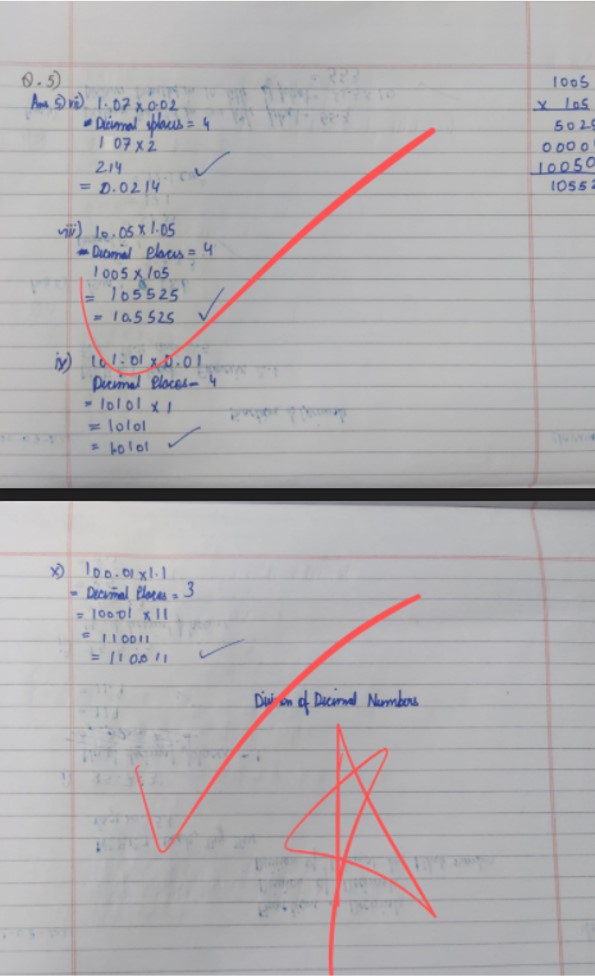 Q.5)
Ans.5) vii). 1.07 x 0.02
Decimal places = 4
107 x 2
214
= 0.0214
viii) 10.05 x 1.05
Decimal Places = 4
1005 x 105
= 105525
= 10.5525
ix) 101.01 x 0.01
Decimal Places - 4
= 10101 x 1
= 10101
= 1.0101
1005
x 105
5025
0000
10050
10552
x) 100.01 x 1.1
= Decimal Places = 3
= 10001 x 11
= 110011
= 110.011
Division of Decimal Numbers